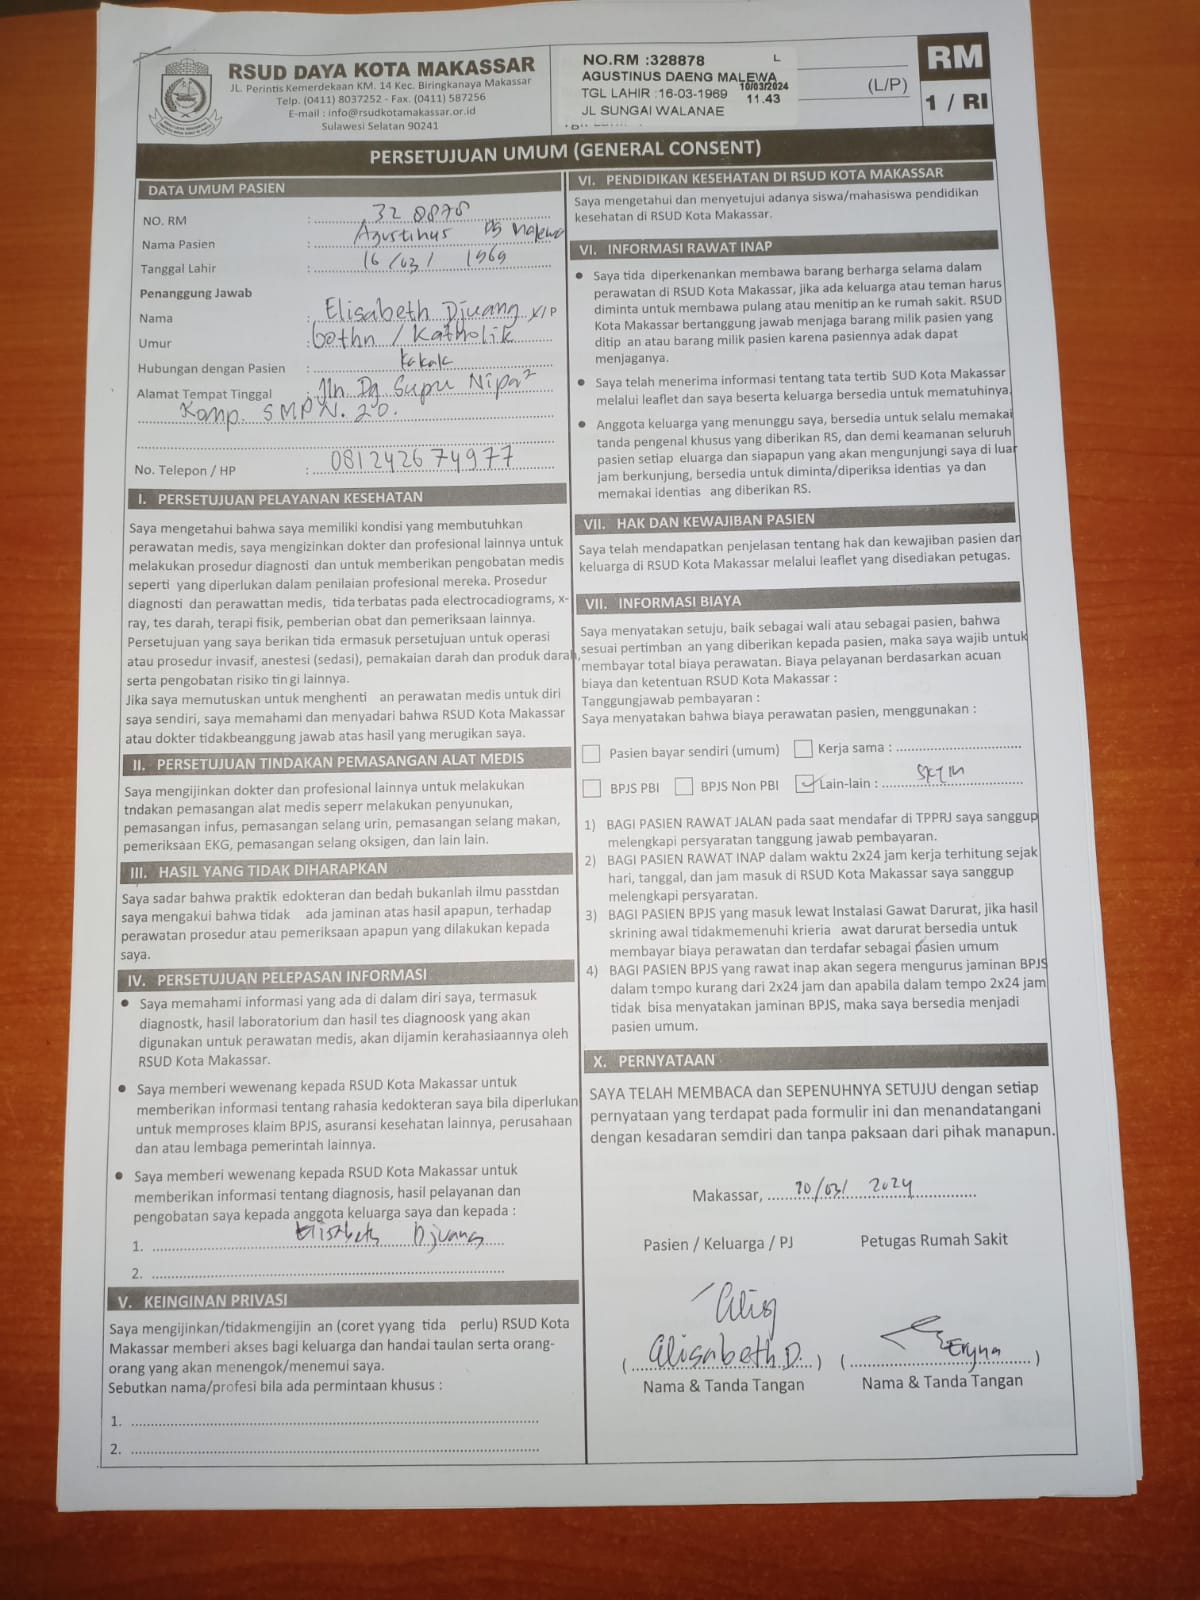 RSUD DAYA KOTA MAKASSAR
JL. Perintis Kemerdekaan KM. 14 Kec. Biringkanaya Makassar
Telp. (0411) 8037252 - Fax. (0411) 587256
E-mail : info@rsudkotamakassar.or.id
Sulawesi Selatan 90241
NO.RM :328878 L
AGUSTINUS DAENG MALEWA
TGL LAHIR :16-03-1969 10/03/2024
11.43
JL SUNGAI WALANAE
(L/P)
RM
1 / RI
PERSETUJUAN UMUM (GENERAL CONSENT)
DATA UMUM PASIEN
NO. RM : 328878
Nama Pasien : Agustinus Dg Malewa
Tanggal Lahir : 16/03/ 1969
Penanggung Jawab
Nama : Elisabeth Djuang L/P
Umur : 60thn / Katholik
Hubungan dengan Pasien : Kakak
Alamat Tempat Tinggal : Jln Dg Supu Nipa2
Komp. SMPN. 20.
No. Telepon / HP : 081242674977
I. PERSETUJUAN PELAYANAN KESEHATAN
Saya mengetahui bahwa saya memiliki kondisi yang membutuhkan
perawatan medis, saya mengizinkan dokter dan profesional lainnya untuk
melakukan prosedur diagnosti dan untuk memberikan pengobatan medis
seperti yang diperlukan dalam penilaian profesional mereka. Prosedur
diagnosti dan perawattan medis, tida terbatas pada electrocadiograms, x-
ray, tes darah, terapi fisik, pemberian obat dan pemeriksaan lainnya.
Persetujuan yang saya berikan tida ermasuk persetujuan untuk operasi
atau prosedur invasif, anestesi (sedasi), pemakaian darah dan produk darah,
serta pengobatan risiko tin gi lainnya.
Jika saya memutuskan untuk menghenti an perawatan medis untuk diri
saya sendiri, saya memahami dan menyadari bahwa RSUD Kota Makassar
atau dokter tidakbeanggung jawab atas hasil yang merugikan saya.
II. PERSETUJUAN TINDAKAN PEMASANGAN ALAT MEDIS
Saya mengijinkan dokter dan profesional lainnya untuk melakukan
tndakan pemasangan alat medis seperr melakukan penyunukan,
pemasangan infus, pemasangan selang urin, pemasangan selang makan,
pemeriksaan EKG, pemasangan selang oksigen, dan lain lain.
III. HASIL YANG TIDAK DIHARAPKAN
Saya sadar bahwa praktik edokteran dan bedah bukanlah ilmu passtdan
saya mengakui bahwa tidak ada jaminan atas hasil apapun, terhadap
perawatan prosedur atau pemeriksaan apapun yang dilakukan kepada
saya.
IV. PERSETUJUAN PELEPASAN INFORMASI
• Saya memahami informasi yang ada di dalam diri saya, termasuk
diagnostk, hasil laboratorium dan hasil tes diagnoosk yang akan
digunakan untuk perawatan medis, akan dijamin kerahasiaannya oleh
RSUD Kota Makassar.
• Saya memberi wewenang kepada RSUD Kota Makassar untuk
memberikan informasi tentang rahasia kedokteran saya bila diperlukan
untuk memproses klaim BPJS, asuransi kesehatan lainnya, perusahaan
dan atau lembaga pemerintah lainnya.
• Saya memberi wewenang kepada RSUD Kota Makassar untuk
memberikan informasi tentang diagnosis, hasil pelayanan dan
pengobatan saya kepada anggota keluarga saya dan kepada :
1. Elisabeth Djuang
2.
V. KEINGINAN PRIVASI
Saya mengijinkan/tidakmengijin an (coret yyang tida perlu) RSUD Kota
Makassar memberi akses bagi keluarga dan handai taulan serta orang-
orang yang akan menengok/menemui saya.
Sebutkan nama/profesi bila ada permintaan khusus :
1.
2.
VI. PENDIDIKAN KESEHATAN DI RSUD KOTA MAKASSAR
Saya mengetahui dan menyetujui adanya siswa/mahasiswa pendidikan
kesehatan di RSUD Kota Makassar.
VI. INFORMASI RAWAT INAP
• Saya tida diperkenankan membawa barang berharga selama dalam
perawatan di RSUD Kota Makassar, jika ada keluarga atau teman harus
diminta untuk membawa pulang atau menitip an ke rumah sakit. RSUD
Kota Makassar bertanggung jawab menjaga barang milik pasien yang
ditip an atau barang milik pasien karena pasiennya adak dapat
menjaganya.
• Saya telah menerima informasi tentang tata tertib SUD Kota Makassar
melalui leaflet dan saya beserta keluarga bersedia untuk mematuhinya.
• Anggota keluarga yang menunggu saya, bersedia untuk selalu memakai
tanda pengenal khusus yang diberikan RS, dan demi keamanan seluruh
pasien setiap eluarga dan siapapun yang akan mengunjungi saya di luar
jam berkunjung, bersedia untuk diminta/diperiksa identias ya dan
memakai identias ang diberikan RS.
VII. HAK DAN KEWAJIBAN PASIEN
Saya telah mendapatkan penjelasan tentang hak dan kewajiban pasien dan
keluarga di RSUD Kota Makassar melalui leaflet yang disediakan petugas.
VII. INFORMASI BIAYA
Saya menyatakan setuju, baik sebagai wali atau sebagai pasien, bahwa
sesuai pertimban an yang diberikan kepada pasien, maka saya wajib untuk
membayar total biaya perawatan. Biaya pelayanan berdasarkan acuan
biaya dan ketentuan RSUD Kota Makassar :
Tanggungjawab pembayaran :
Saya menyatakan bahwa biaya perawatan pasien, menggunakan :
Pasien bayar sendiri (umum) Kerja sama :
BPJS PBI BPJS Non PBI Lain-lain : SKTM
1) BAGI PASIEN RAWAT JALAN pada saat mendafar di TPPRJ saya sanggup
melengkapi persyaratan tanggung jawab pembayaran.
2) BAGI PASIEN RAWAT INAP dalam waktu 2x24 jam kerja terhitung sejak
hari, tanggal, dan jam masuk di RSUD Kota Makassar saya sanggup
melengkapi persyaratan.
3) BAGI PASIEN BPJS yang masuk lewat Instalasi Gawat Darurat, jika hasil
skrining awal tidakmemenuhi krieria awat darurat bersedia untuk
membayar biaya perawatan dan terdafar sebagai pasien umum
4) BAGI PASIEN BPJS yang rawat inap akan segera mengurus jaminan BPJS
dalam tempo kurang dari 2x24 jam dan apabila dalam tempo 2x24 jam
tidak bisa menyatakan jaminan BPJS, maka saya bersedia menjadi
pasien umum.
X. PERNYATAAN
SAYA TELAH MEMBACA dan SEPENUHNYA SETUJU dengan setiap
pernyataan yang terdapat pada formulir ini dan menandatangani
dengan kesadaran semdiri dan tanpa paksaan dari pihak manapun.
Makassar, 10/03/ 2024
Pasien / Keluarga / PJ Petugas Rumah Sakit
(Elisabeth D.) (Eryna)
Nama & Tanda Tangan Nama & Tanda Tangan